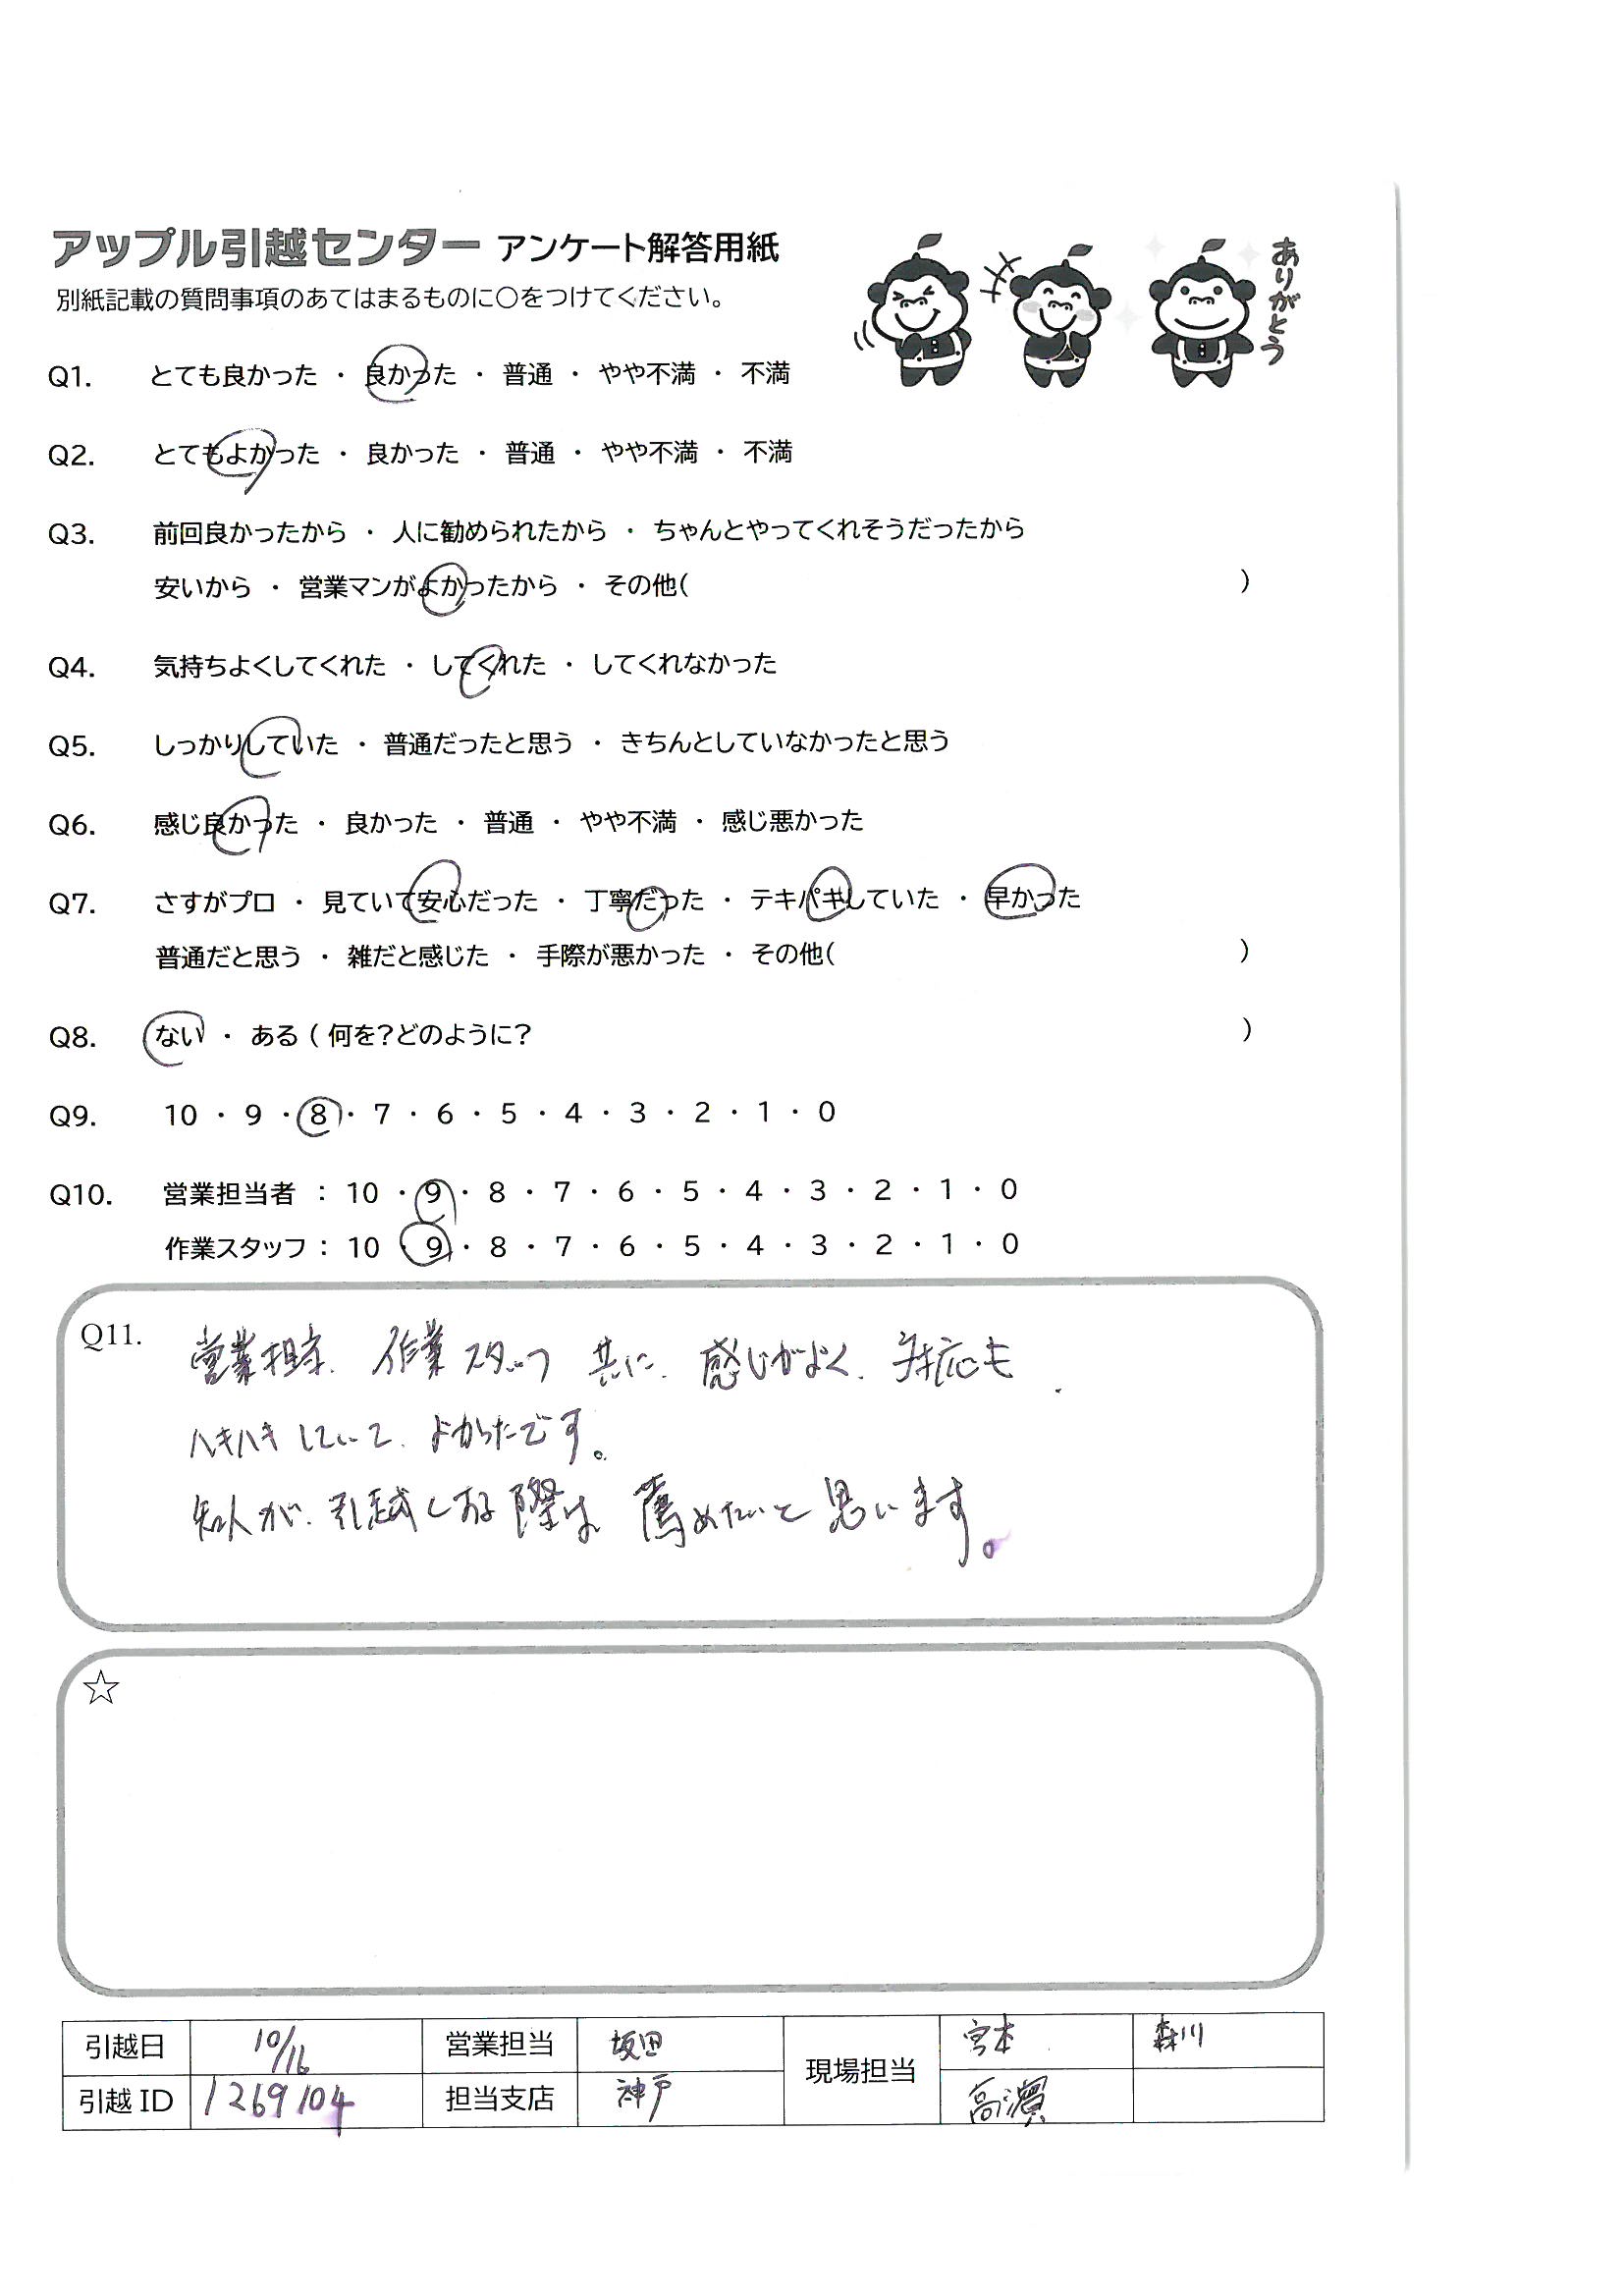 アップル引越センター アンケート解答用紙
別紙記載の質問事項のあてはまるものに○をつけてください。
ありがとう
Q1. とても良かった ・ 良かった ・ 普通 ・ やや不満 ・ 不満
Q2. とてもよかった ・ 良かった ・ 普通 ・ やや不満 ・ 不満
Q3. 前回良かったから ・ 人に勧められたから ・ ちゃんとやってくれそうだったから
安いから ・ 営業マンがよかったから ・ その他( )
Q4. 気持ちよくしてくれた ・ してくれた ・ してくれなかった
Q5. しっかりしていた ・ 普通だったと思う ・ きちんとしていなかったと思う
Q6. 感じ良かった ・ 良かった ・ 普通 ・ やや不満 ・ 感じ悪かった
Q7. さすがプロ ・ 見ていて安心だった ・ 丁寧だった ・ テキパキしていた ・ 早かった
普通だと思う ・ 雑だと感じた ・ 手際が悪かった ・ その他( )
Q8. ない ・ ある ( 何を?どのように? )
Q9. 10 ・ 9 ・ 8 ・ 7 ・ 6 ・ 5 ・ 4 ・ 3 ・ 2 ・ 1 ・ 0
Q10. 営業担当者 : 10 ・ 9 ・ 8 ・ 7 ・ 6 ・ 5 ・ 4 ・ 3 ・ 2 ・ 1 ・ 0
作業スタッフ : 10 ・ 9 ・ 8 ・ 7 ・ 6 ・ 5 ・ 4 ・ 3 ・ 2 ・ 1 ・ 0
Q11. 営業担当、作業スタッフ 共に、感じがよく、対応も
ハキハキしていて、よかったです。
知人が、引越しする際は、薦めたいと思います。
☆
引越日 10/16 営業担当 坂田 現場担当 宮本 森川
引越ID 1269104 担当支店 神戸 高濱